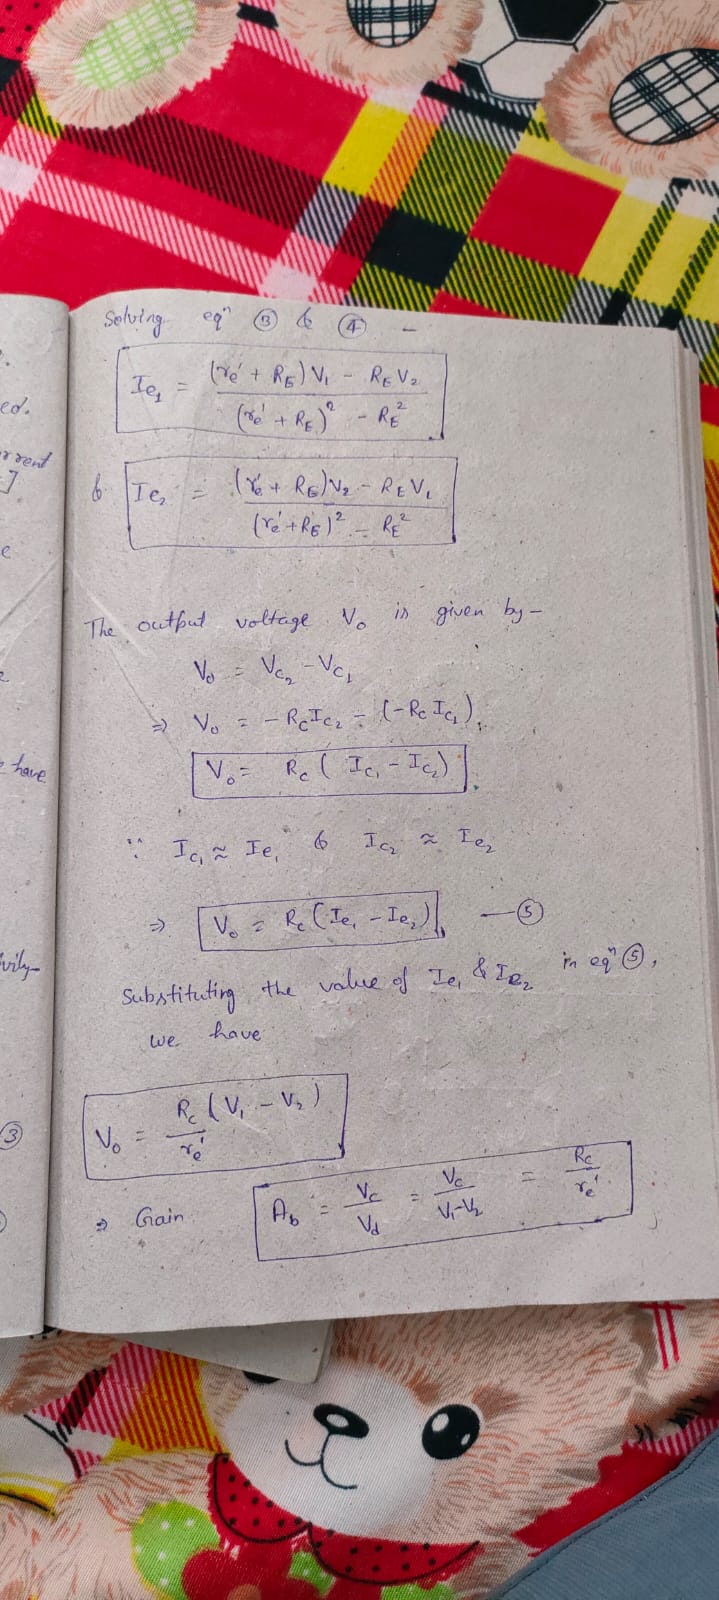 ed.
rrent
]
e
have
③
Solving eqⁿ ③ & ④ –
Ie₁ = (re' + RE) V₁ - RE V₂ / (re' + RE)² - RE²
& Ie₂ = (re' + RE) V₂ - RE V₁ / (re' + RE)² - RE²
The output voltage Vo is given by –
Vo = Vc₂ - Vc₁
⇒ Vo = - Rc Ic₂ - (-Rc Ic₁)
Vo = Rc ( Ic₁ - Ic₂)
∵ Ic₁ ≈ Ie₁ & Ic₂ ≈ Ie₂
⇒ Vo = Rc (Ie₁ - Ie₂) —⑤
Substituting the value of Ie₁ & Ie₂ in eqⁿ ⑤,
we have
Vo = Rc (V₁ - V₂) / re'
⇒ Gain Ab = Vc / Vd = Vc / V₁-V₂ = Rc / re'